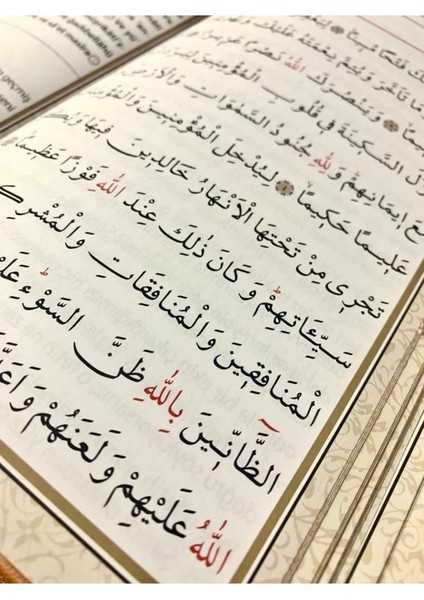 فَتْحًا مُبِينًا
مَا تَأَخَّرَ وَيُتِمَّ نِعْمَتَهُ عَلَيْكَ
وَيَنْصُرَكَ اللّٰهُ نَصْرًا عَزِيزًا
السَّكِينَةَ فِي قُلُوبِ الْمُؤْمِنِينَ
مَعَ ايمَانِهِمْ وَلِلّٰهِ جُنُودُ السَّمٰوَاتِ وَالْاَرْضِ
عَلِيمًا حَكِيمًا ۝ لِيُدْخِلَ الْمُؤْمِنِينَ
تَجْرِي مِنْ تَحْتِهَا الْاَنْهَارُ خَالِدِينَ فِيهَا
سَيِّـَٔاتِهِمْ وَكَانَ ذٰلِكَ عِنْدَ اللّٰهِ فَوْزًا عَظِيمًا
الْمُنَافِقِينَ وَالْمُنَافِقَاتِ وَالْمُشْرِك
الظَّٓانِّينَ بِاللّٰهِ ظَنَّ السَّوْءِ
اللّٰهُ عَلَيْهِمْ وَلَعَنَهُمْ وَاَعَدَّ